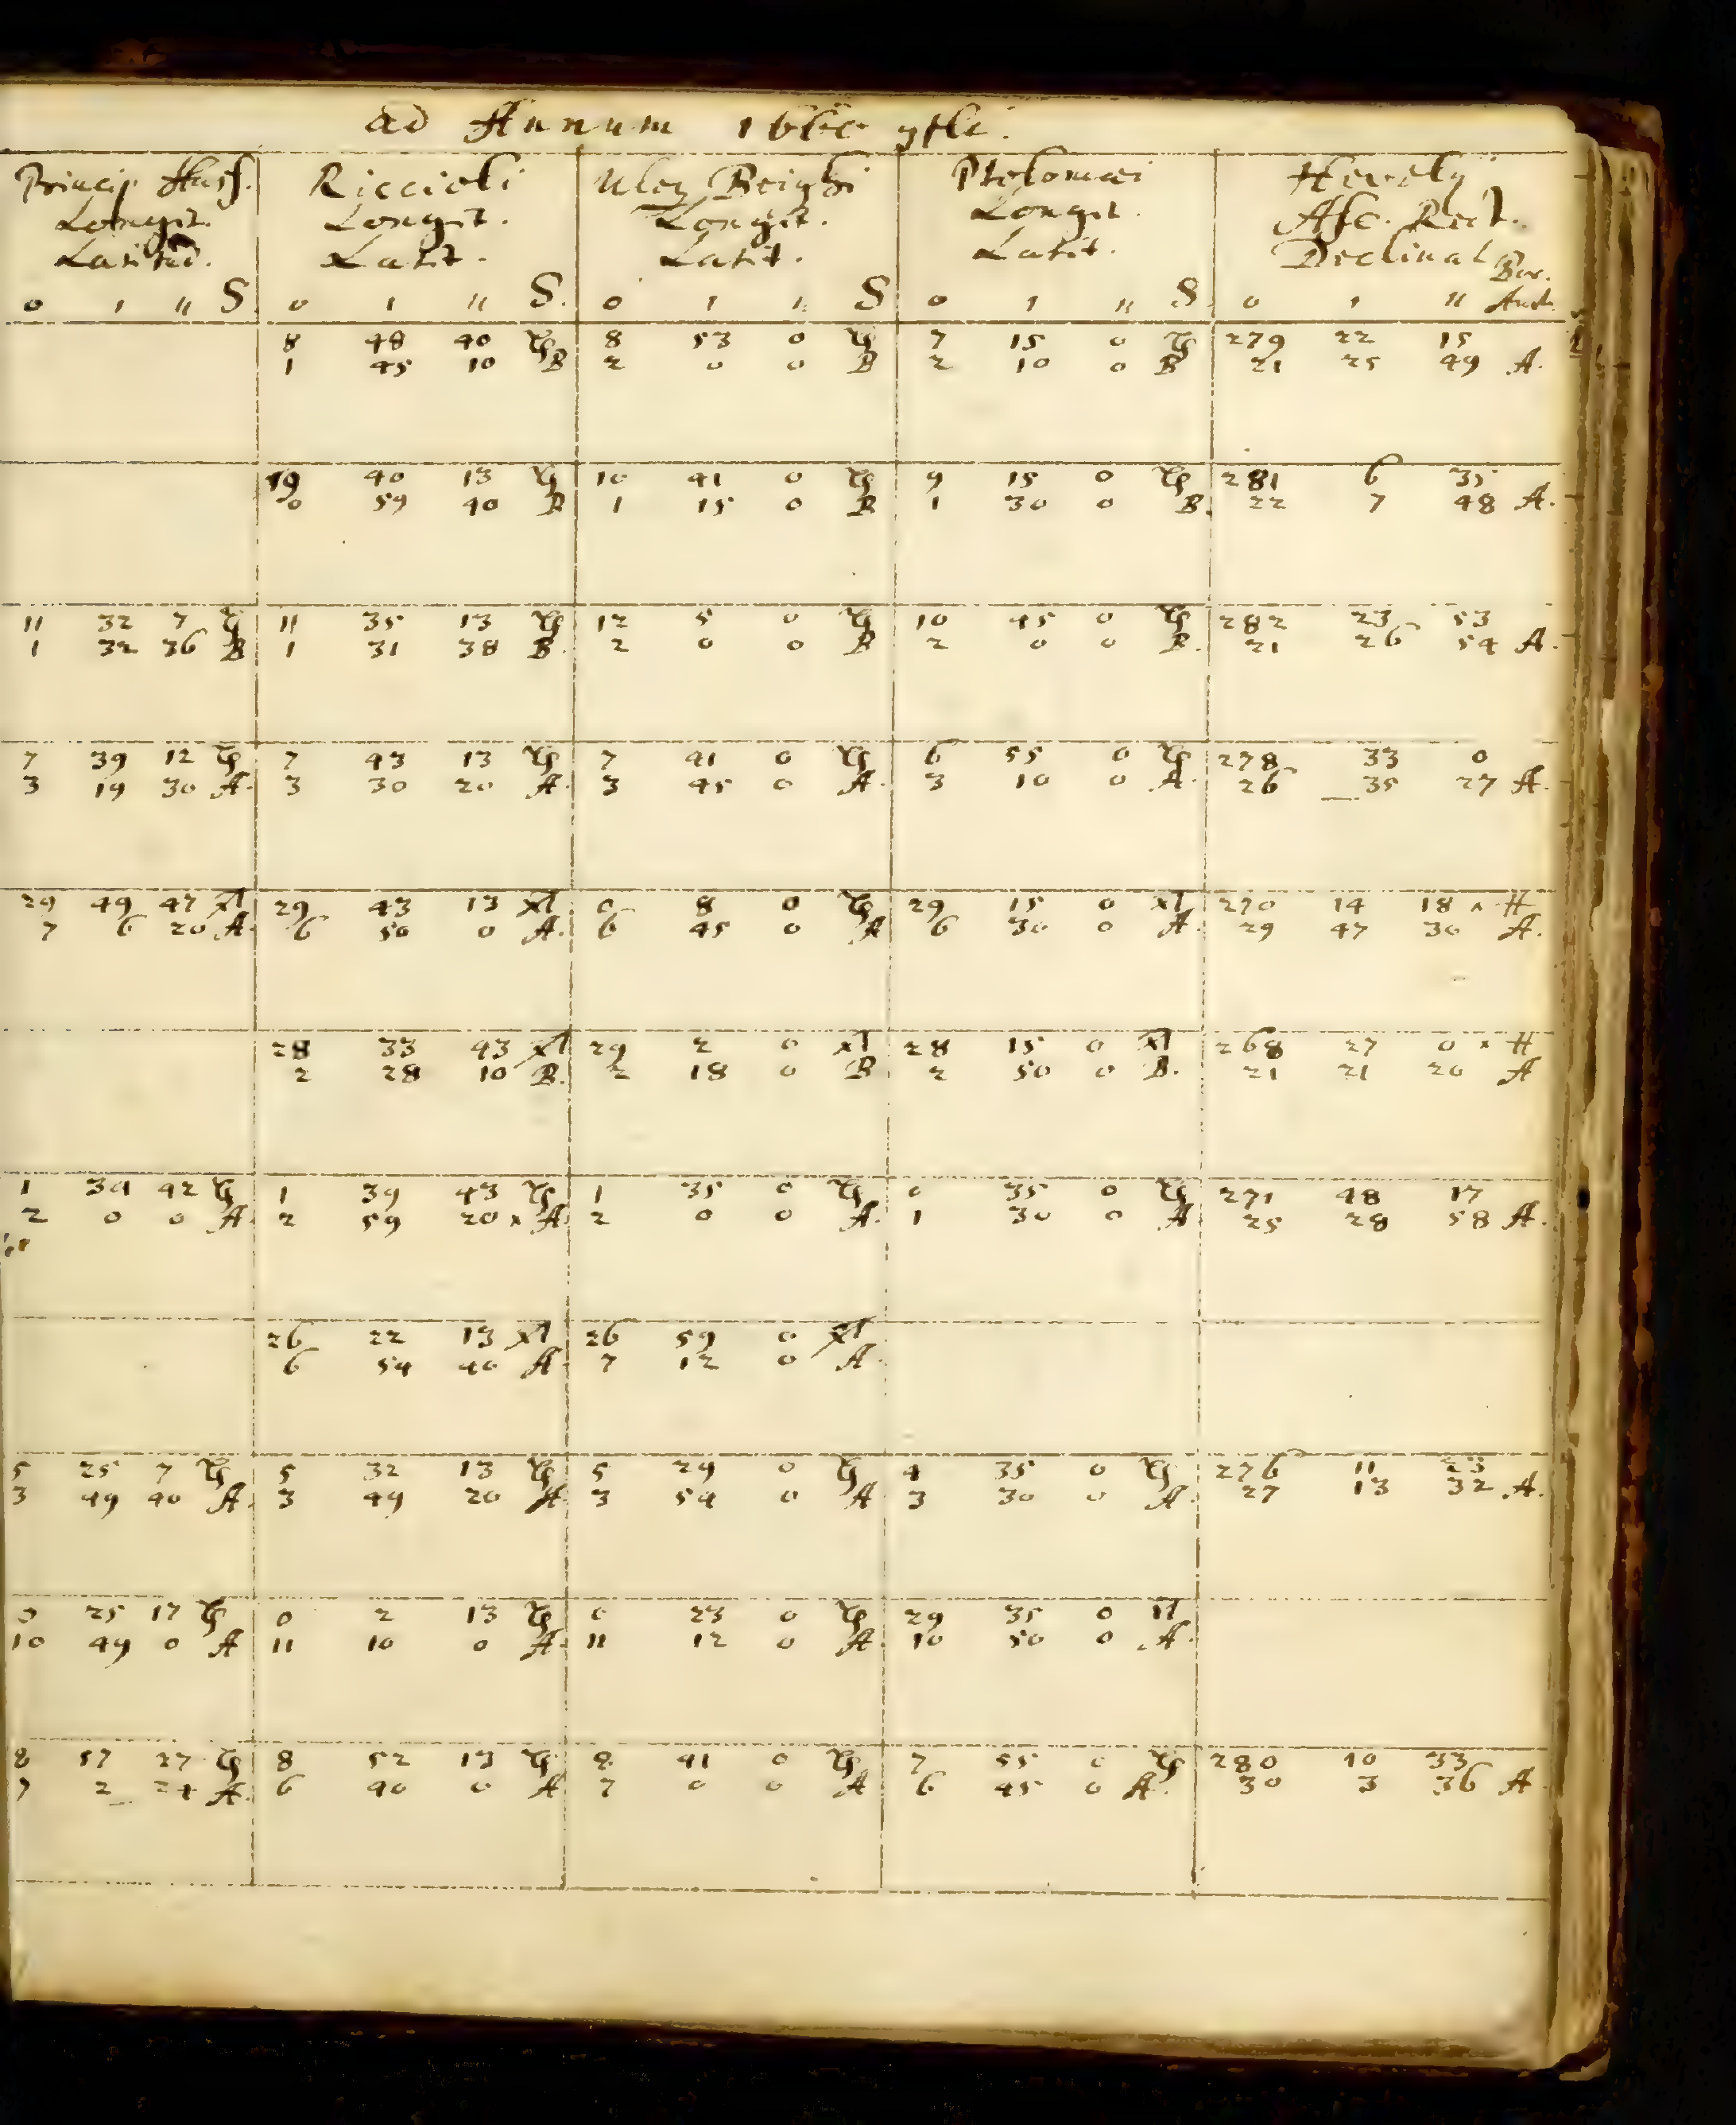 ad Annum 1660
Princip. Hass. | Riccioli | Uleg Beighi | Ptolomæi | Hevelij
Longit. | Longit. | Longit. | Longit. | Asc. Rect.
Latitud. | Latit. | Latit. | Latit. | Declinat Bor.
0 ı ıı S | 0 ı ıı S. | 0 ı ıı S | 0 ı ıı S | 0 ı ıı Aust.
8 48 40 ♑ | 8 53 0 ♑ | 7 15 0 ♑ | 279 22 15
1 45 10 B | 2 0 0 B | 2 10 0 B | 21 25 49 A.
19 40 13 ♑ | 10 41 0 ♑ | 9 15 0 ♑ | 281 6 35
0 59 40 B | 1 15 0 B | 1 30 0 B. | 22 7 48 A.
11 32 7 ♑ | 11 35 13 ♑ | 12 5 0 ♑ | 10 45 0 ♑ | 282 23 53
1 32 36 B | 1 31 38 B. | 2 0 0 B | 2 0 0 B. | 21 26 54 A.
7 39 12 ♑ | 7 43 13 ♑ | 7 41 0 ♑ | 6 55 0 ♑ | 278 33 0
3 19 30 A. | 3 30 20 A. | 3 45 0 A. | 3 10 0 A. | 26 35 27 A.
29 49 47 ♐ | 29 43 13 ♐ | 0 8 0 ♑ | 29 15 0 ♐ | 270 14 18 × H
7 6 20 A. | 6 50 0 A. | 6 45 0 A | 6 30 0 A. | 29 47 30 A.
28 33 43 ♐ | 29 2 0 ♐ | 28 15 0 ♐ | 268 27 0 × H
2 28 10 B. | 2 18 0 B | 2 50 0 B. | 21 21 20 A
1 39 42 ♑ | 1 39 43 ♑ | 1 35 0 ♑ | 0 35 0 ♑ | 271 48 17
2 0 0 A. | 2 59 20 × A. | 2 0 0 A. | 1 30 0 A | 25 28 58 A.
26 22 13 ♐ | 26 59 0 ♐
6 54 40 A. | 7 12 0 A.
5 25 7 ♑ | 5 32 13 ♑ | 5 29 0 ♑ | 4 35 0 ♑ | 276 11 23
3 49 40 A. | 3 49 20 A | 3 54 0 A | 3 30 0 A. | 27 13 32 A.
0 25 17 ♑ | 0 2 13 ♑ | 0 23 0 ♑ | 29 35 0 ♐
10 49 0 A | 11 10 0 A. | 11 12 0 A. | 10 50 0 A.
8 57 27 ♑ | 8 52 13 ♑ | 8 41 0 ♑ | 7 55 0 ♑ | 280 10 33
7 2 24 A. | 6 40 0 A | 7 0 0 A | 6 45 0 A. | 30 3 36 A